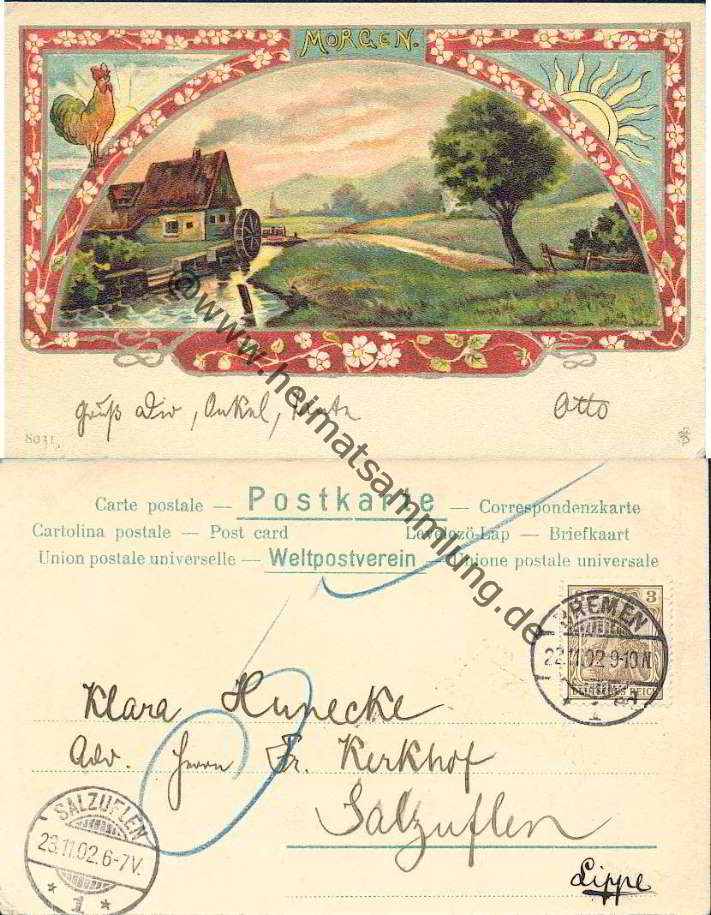 MORGEN.
gruß Dir, Onkel, Tante Otto
8031
© www.heimatsammlung.de
Carte postale — Postkarte — Correspondenzkarte
Cartolina postale — Post card Levelező-Lap — Briefkaart
Union postale universelle — Weltpostverein — Unione postale universale
3
BREMEN
22.11.02.9-10N.
DEUTSCHES REICH
* 1
Klara Hunecke
Adr. Herrn Fr. Kerkhof
Salzuflen
Lippe
SALZUFLEN
23.11.02.6-7V.
* 1 *